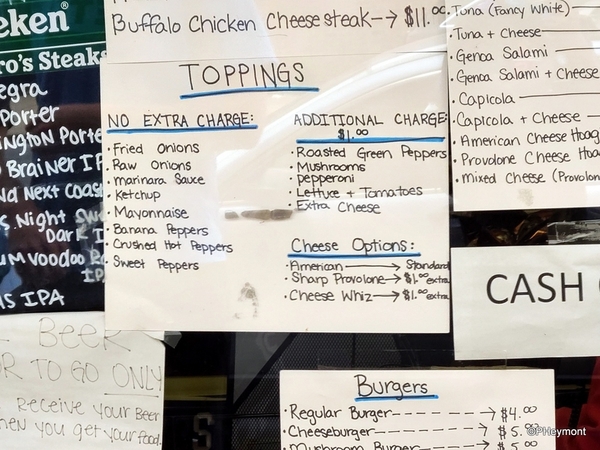 eken®
ro's Steaks
egra
Porter
ington Porte
Brainer IP
nd Next Coas
s Night Sw
Dark I
um Voodoo R
IP
IS IPA
Beer
OR TO GO ONLY
Receive your Beer
when you get your food.
Buffalo Chicken Cheesesteak→ $11.00
TOPPINGS
NO EXTRA CHARGE:
• Fried Onions
• Raw Onions
• marinara Sauce
• Ketchup
• Mayonnaise
• Banana Peppers
• Crushed Hot Peppers
• Sweet Peppers
ADDITIONAL CHARGE:
$1.00
• Roasted Green Peppers
• Mushrooms
• pepperoni
• Lettuce + Tomatoes
• Extra Cheese
Cheese Options:
• American → Standard
• Sharp Provolone → $1.00 extra
• Cheese Whiz → $1.00 extra
Tuna (Fancy White)
• Tuna + Cheese
• Genoa Salami
• Genoa Salami + Cheese
• Capicola
• Capicola + Cheese
• American Cheese Hoag
• Provolone Cheese Hoa
• mixed Cheese (Provolon
CASH
Burgers
• Regular Burger → $4.00
• Cheeseburger → $5.00
• Mushroom Burger → $5.
©PHeymont